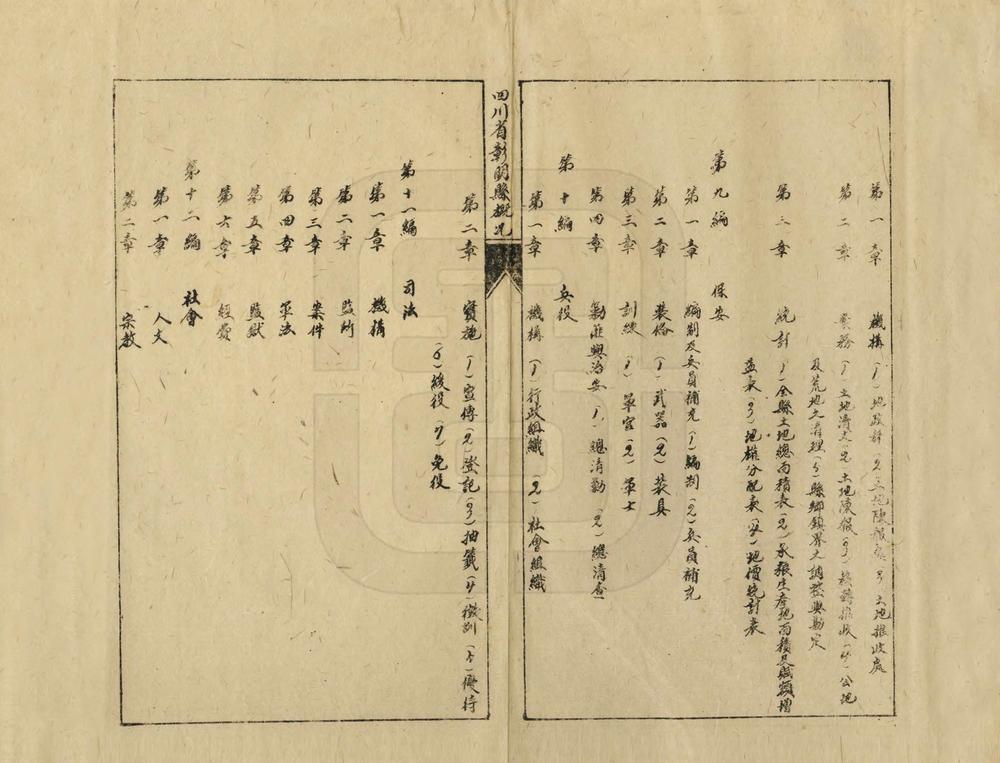 第一章　機構　(1)地政科(2)土地陳報處(3)土地推收處
第二章　業務　(1)土地清丈(2)土地陳報(3)移轉推收(4)公地
及荒地之清理(5)縣鄉鎮界之調整與勘定
第三章　統計　(1)全縣土地總面積表(2)承報生產地面積及賦額增
益表(3)地權分配表(4)地價統計表
第九編　保安
第一章　編制及兵員補充(1)編制(2)兵員補充
第二章　裝俻(1)武器(2)裝具
第三章　訓練　(1)軍官(2)軍士
第四章　勦匪與治安(1)總清勦(2)總清查
第十編　兵役
第一章　機構　(1)行政組織　(2)社會組織
四川省彰明縣概况
第二章　實施　(1)宣傳(2)登記(3)抽籤(4)徵訓(5)優待
(6)緩役(7)免役
第十一編　司法
第一章　機構
第二章　監所
第三章　案件
第四章　軍法
第五章　監獄
第六章　經費
第十二編　社會
第一章　人文
第二章　宗教